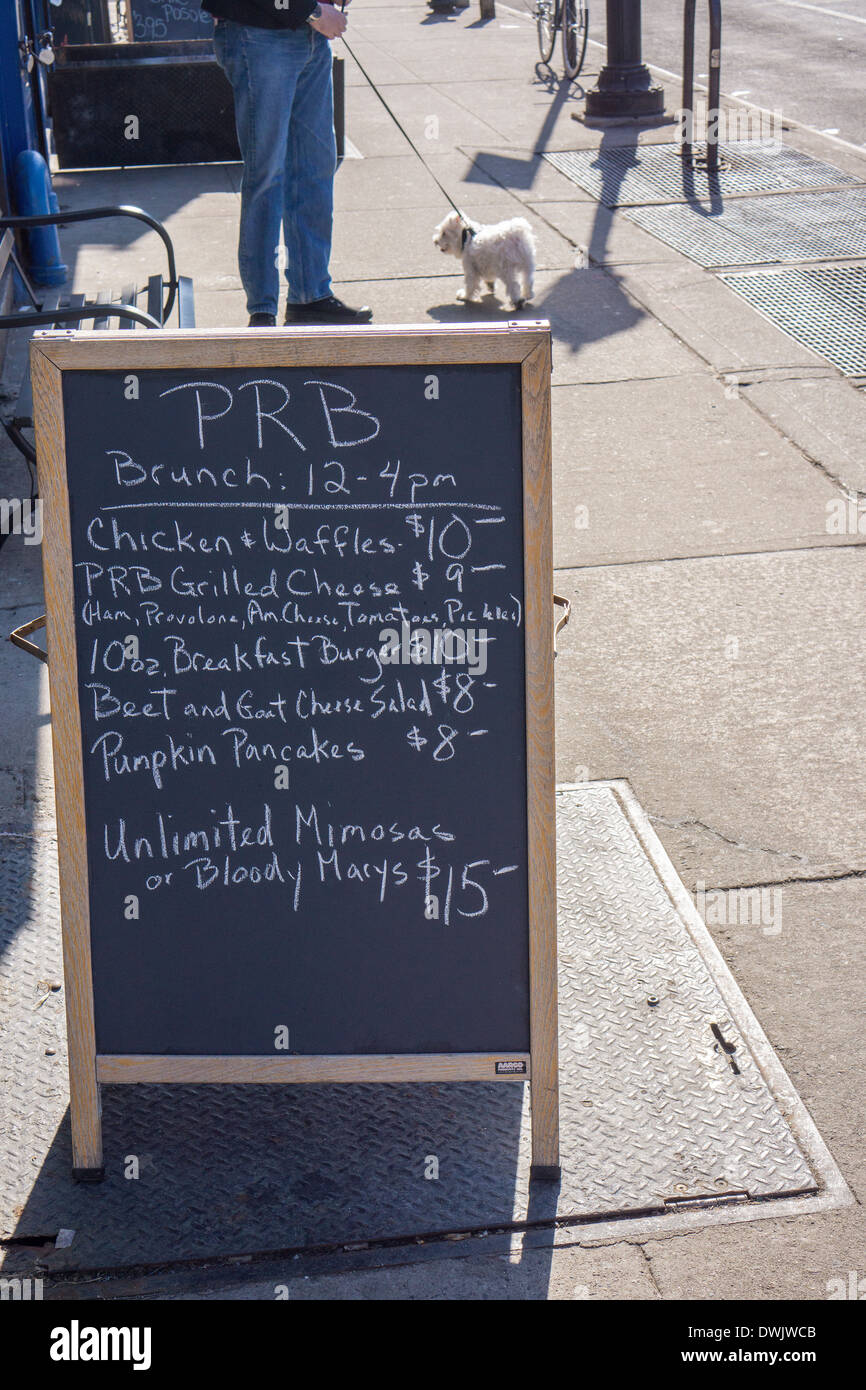 POSOLE
395
PRB
Brunch: 12-4pm
Chicken & Waffles- $10-
PRB Grilled Cheese $9-
(Ham, Provolone, Am. Cheese, Tomatoes, Pickles)
10oz. Breakfast Burger $10-
Beet and Goat Cheese Salad $8-
Pumpkin Pancakes $8-
Unlimited Mimosas
or Bloody Marys $15-
AARCO
alamy
Image ID: DWJWCB
www.alamy.com